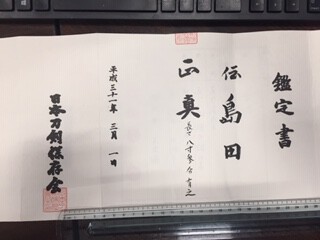 鑑定書
伝島田
正真
長サ八寸参分有之
平成三十一年三月一日
日本刀剣保存会